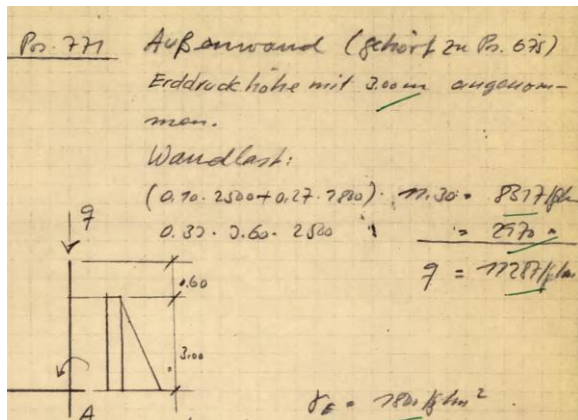 Pos. 771 Außenwand (gehört zu Pos. 675)
Erddruckhöhe mit 3.00 m angenom-
men.
Wandlast:
(0.10 · 2500 + 0.27 · 1800) · 11.30 = 8317 kg/m
0.33 · 3.60 · 2500 = 2970 "
q = 11287 kg/m
q
0.60
3.00
A
γE = 1800 kg/m²